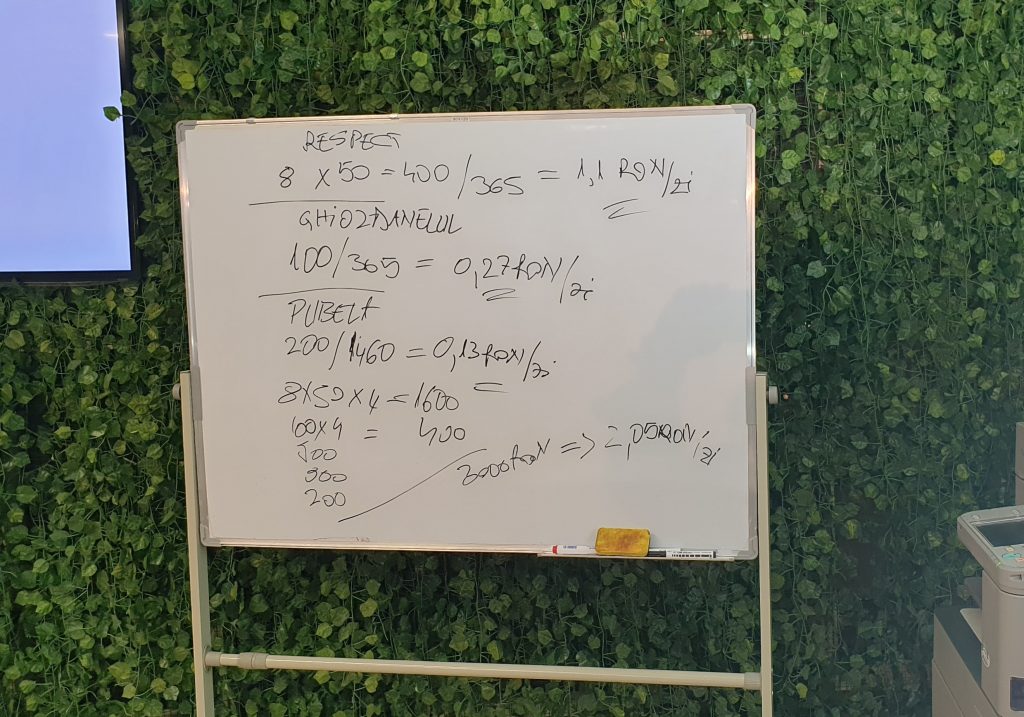 RESPECT
8 x 50 = 400 / 365 = 1,1 RON/zi
GHIOZDANELUL
100/365 = 0,27 RON/zi
PUBELA
200/1460 = 0,13 RON/zi
8x50x4 = 1600
100x4 = 400
500
300
200
3000 RON => 2,05 RON/zi